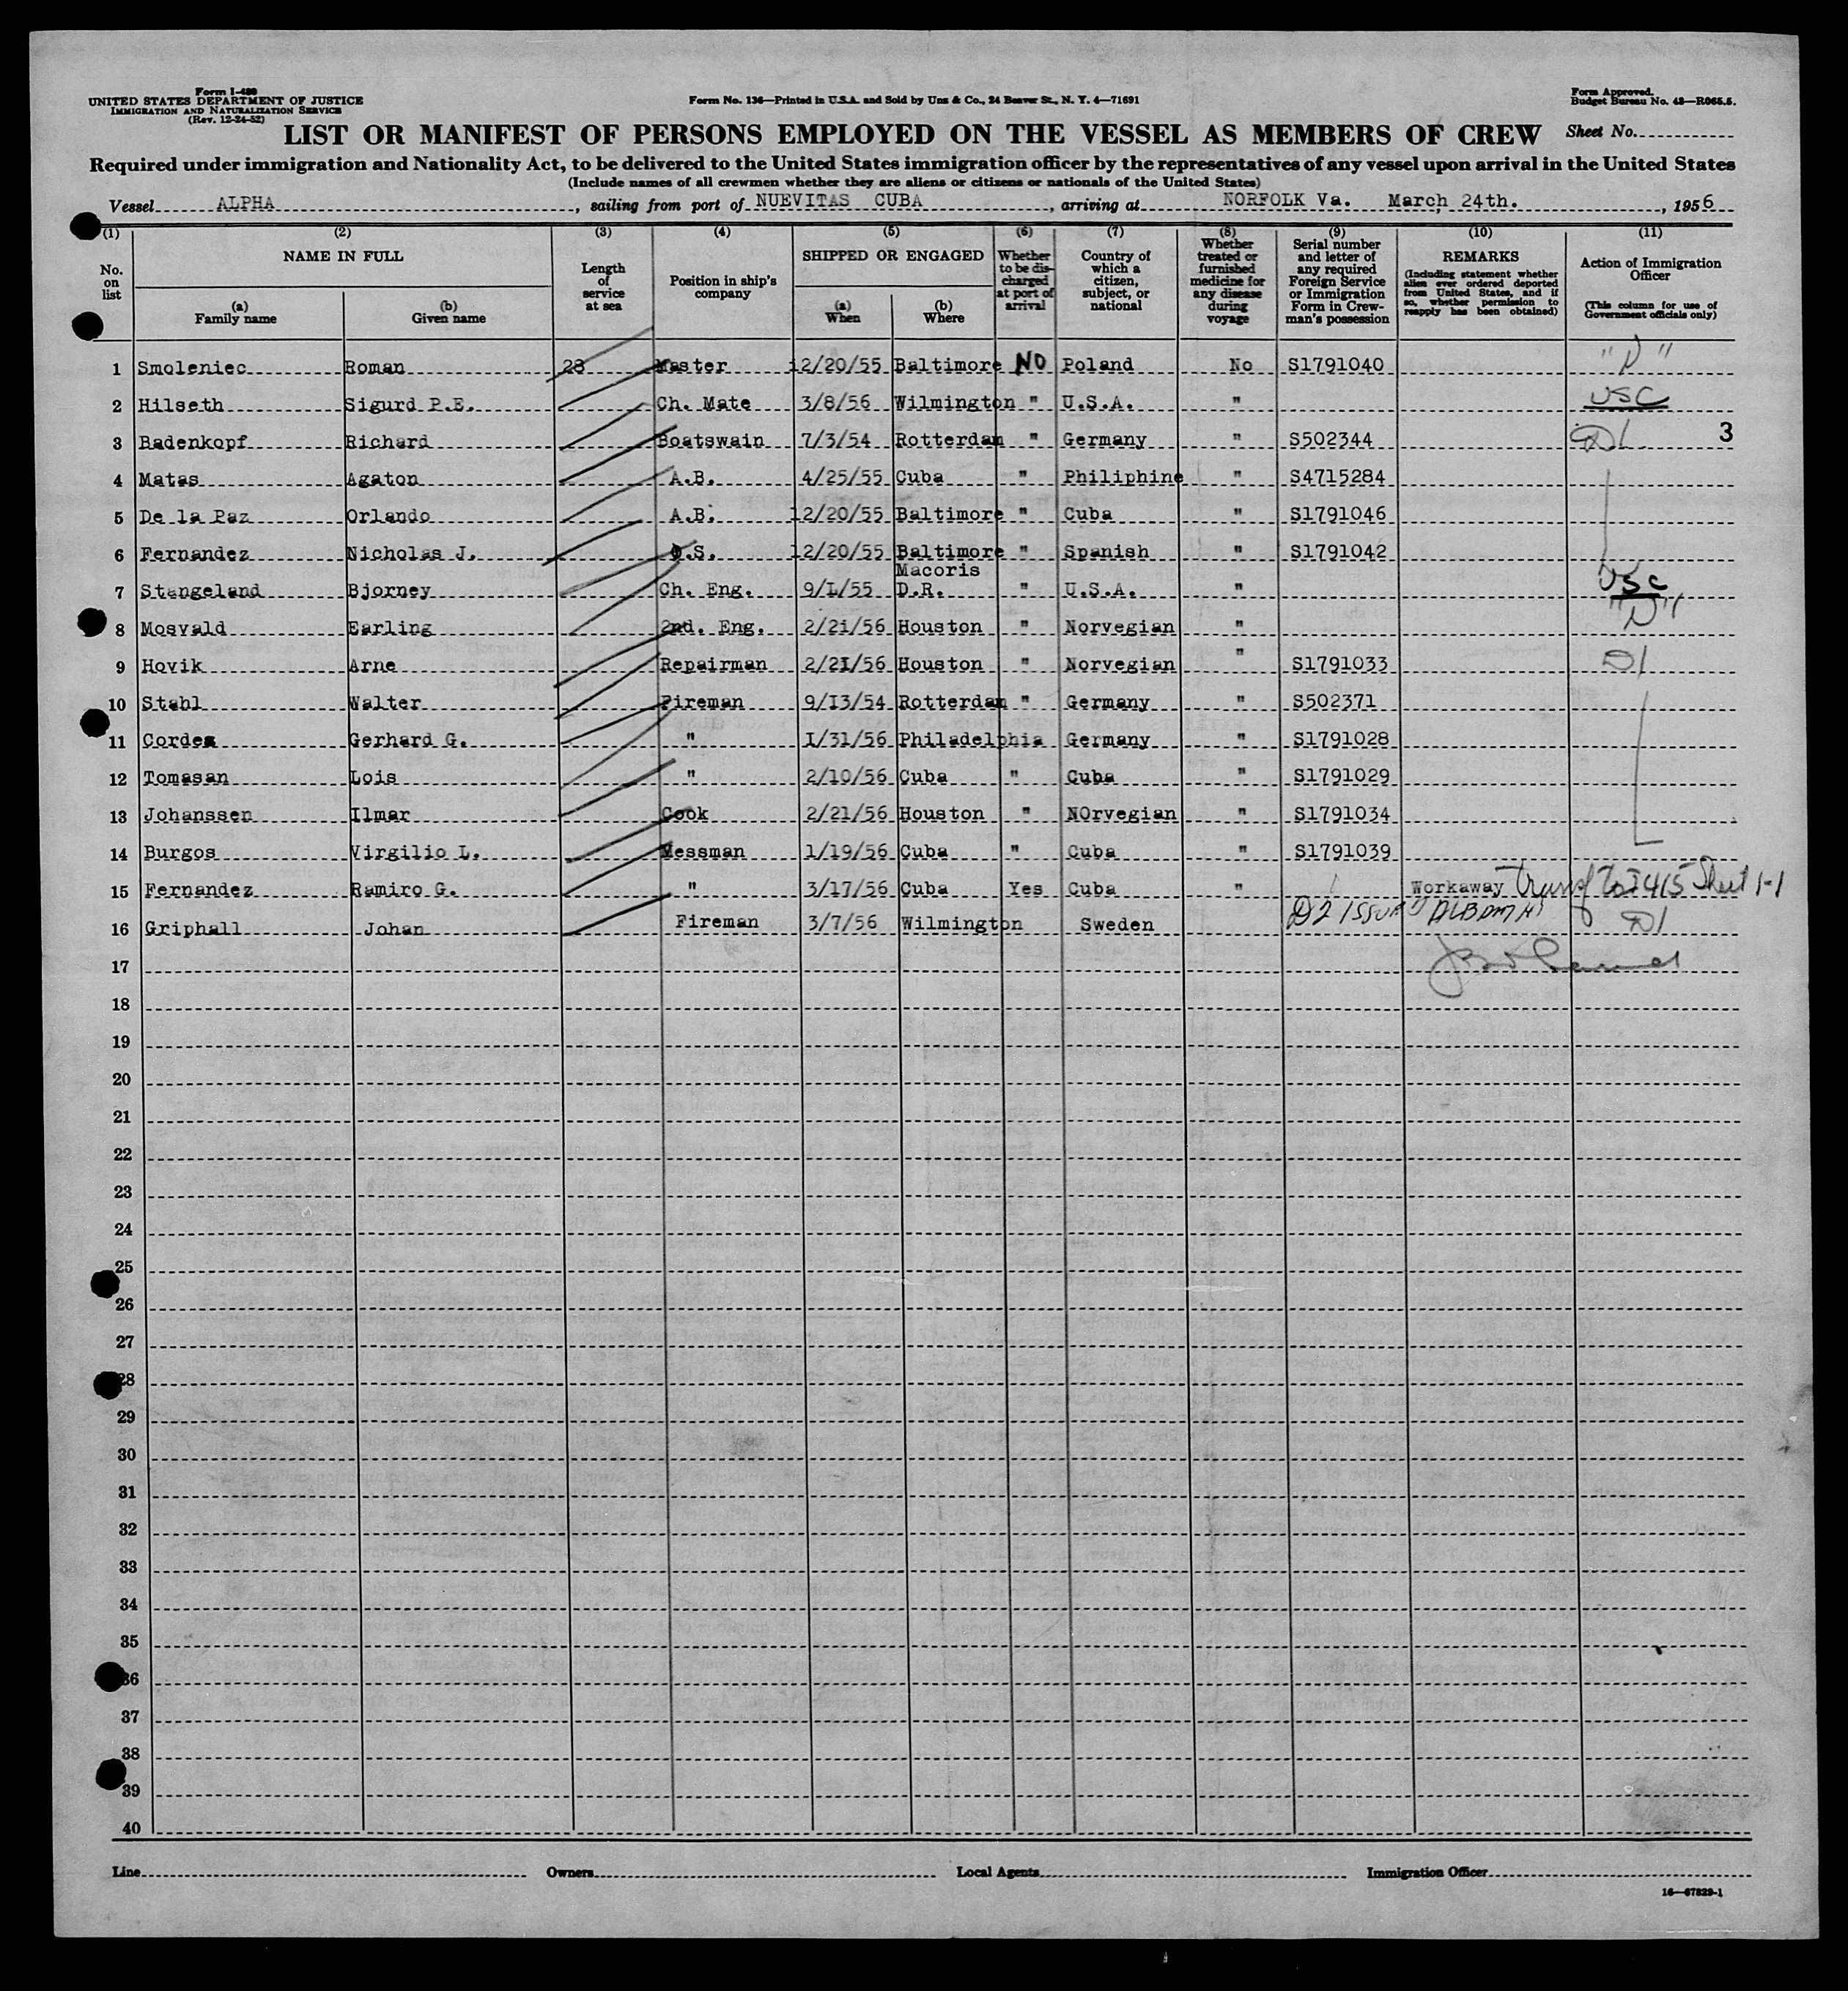 Form I-489
UNITED STATES DEPARTMENT OF JUSTICE
IMMIGRATION AND NATURALIZATION SERVICE
(Rev. 12-24-52)
Form No. 136—Printed in U.S.A. and Sold by Unz & Co., 24 Beaver St., N. Y. 4—71691
Form Approved.
Budget Bureau No. 43—R065.5.
LIST OR MANIFEST OF PERSONS EMPLOYED ON THE VESSEL AS MEMBERS OF CREW Sheet No.
Required under immigration and Nationality Act, to be delivered to the United States immigration officer by the representatives of any vessel upon arrival in the United States
(Include names of all crewmen whether they are aliens or citizens or nationals of the United States)
Vessel ALPHA, sailing from port of NUEVITAS CUBA, arriving at NORFOLK Va. March 24th., 1956
(1) No. on list
(2) NAME IN FULL (a) Family name (b) Given name
(3) Length of service at sea
(4) Position in ship's company
(5) SHIPPED OR ENGAGED (a) When (b) Where
(6) Whether to be discharged at port of arrival
(7) Country of which a citizen, subject, or national
(8) Whether treated or furnished medicine for any disease during voyage
(9) Serial number and letter of any required Foreign Service or Immigration Form in Crewman's possession
(10) REMARKS (Including statement whether alien ever ordered deported from United States, and if so, whether permission to reapply has been obtained)
(11) Action of Immigration Officer (This column for use of Government officials only)
1 Smoleniec Roman 23 Master 12/20/55 Baltimore NO Poland No S1791040 "D"
2 Hilseth Sigurd P.E. Ch. Mate 3/8/56 Wilmington " U.S.A. " USC
3 Badenkopf Richard Boatswain 7/3/54 Rotterdam " Germany " S502344 D1 3
4 Matas Agaton A.B. 4/25/55 Cuba " Philiphine " S4715284
5 De la Paz Orlando A.B. 12/20/55 Baltimore " Cuba " S1791046
6 Fernandez Nicholas J. O.S. 12/20/55 Baltimore " Spanish " S1791042
7 Stangeland Bjorney Ch. Eng. 9/1/55 Macoris D.R. " U.S.A. " USC
8 Mosvald Earling 2nd. Eng. 2/21/56 Houston " Norvegian " "D"
9 Hovik Arne Repairman 2/21/56 Houston " Norvegian " S1791033 D1
10 Stahl Walter Fireman 9/13/54 Rotterdam " Germany " S502371
11 Cordes Gerhard G. " 1/31/56 Philadelphia Germany " S1791028
12 Tomasan Lois " 2/10/56 Cuba " Cuba " S1791029
13 Johanssen Ilmar Cook 2/21/56 Houston " NOrvegian " S1791034
14 Burgos Virgilio L. Messman 1/19/56 Cuba " Cuba " S1791039
15 Fernandez Ramiro G. " 3/17/56 Cuba Yes Cuba " Workaway Transf to I 415 Sheet 1-1
16 Griphall Johan Fireman 3/7/56 Wilmington Sweden D2 D1
17
18
19
20
21
22
23
24
25
26
27
28
29
30
31
32
33
34
35
36
37
38
39
40
Line Owners Local Agents Immigration Officer
16—67829-1